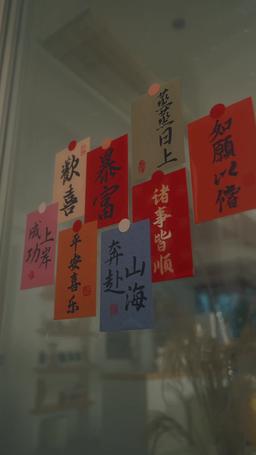 歡喜
暴富
蒸蒸日上
如願以償
成功
上岸
平安喜乐
奔赴
山海
诸事皆順